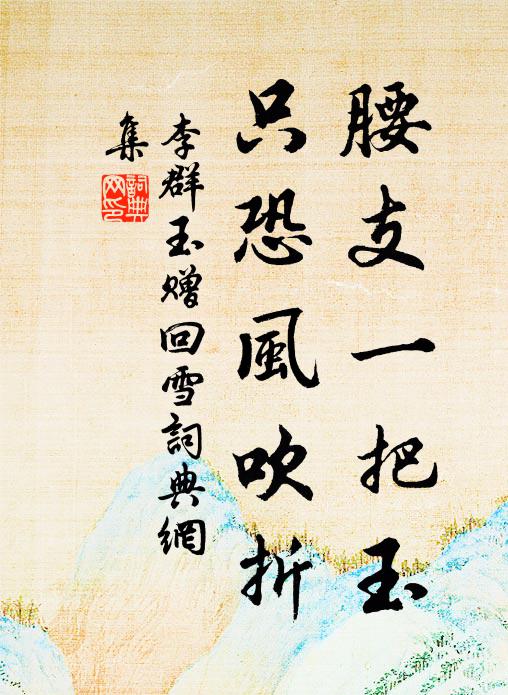 腰支一把玉
只恐風吹折
李群玉赠回雪詞典網
集
詞典
网印